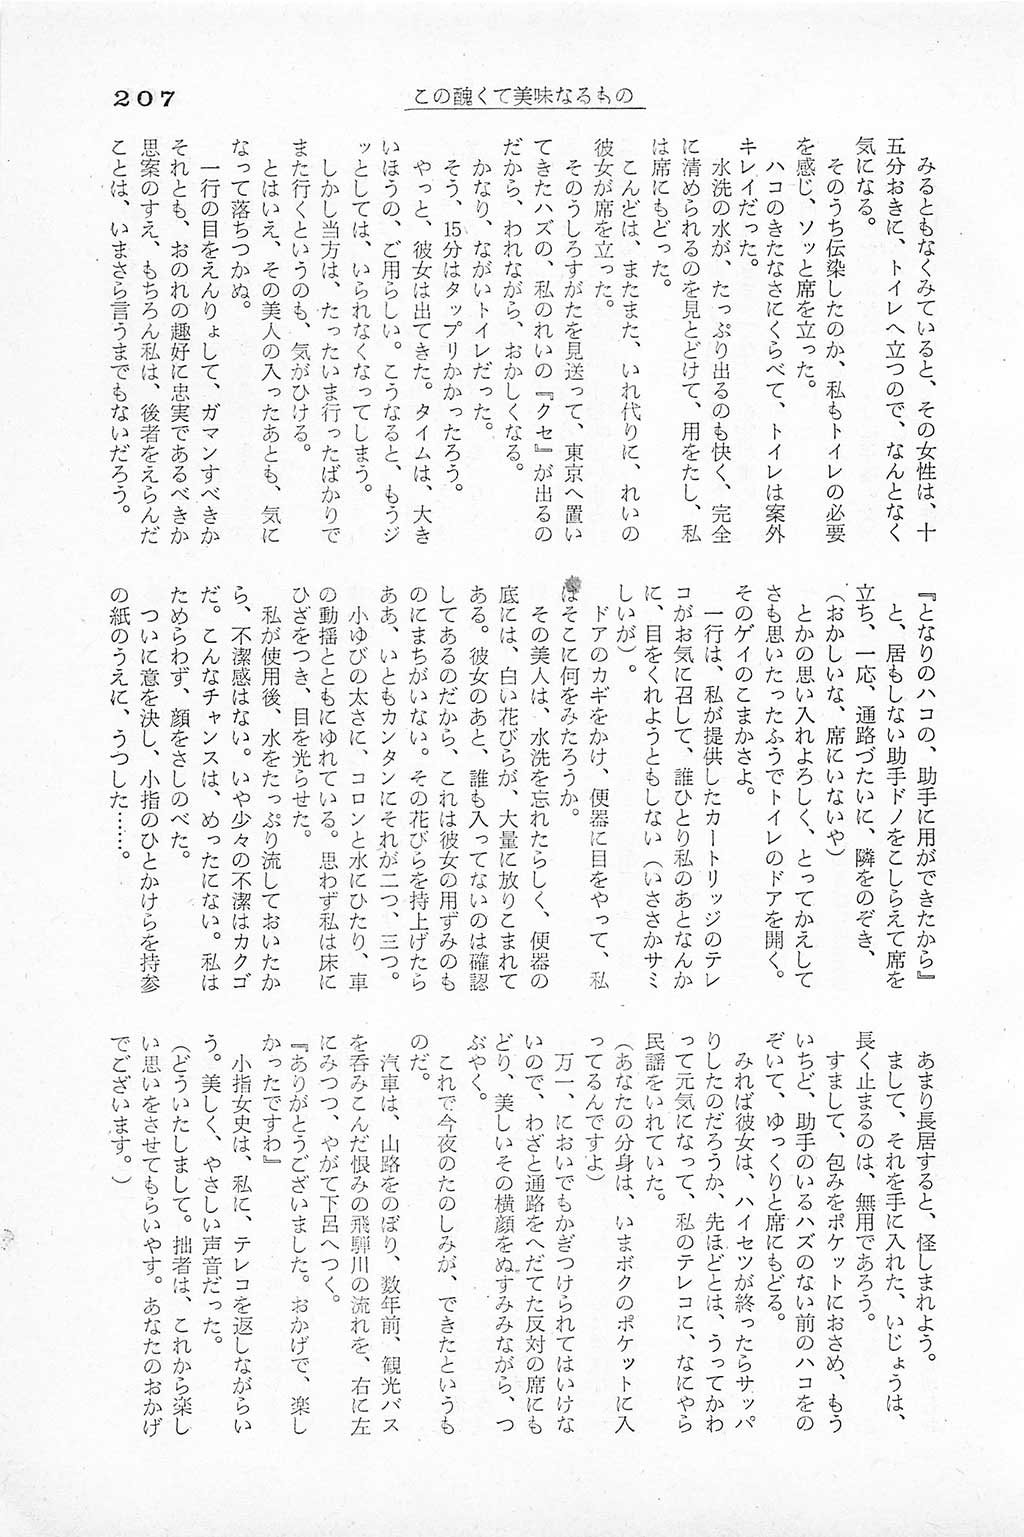 207
この醜くて美味なるもの
みるともなくみていると、その女性は、十
五分おきに、トイレへ立つので、なんとなく
気になる。
そのうち伝染したのか、私もトイレの必要
を感じ、ソッと席を立った。
ハコのきたなさにくらべて、トイレは案外
キレイだった。
水洗の水が、たっぷり出るのも快く、完全
に清められるのを見とどけて、用をたし、私
は席にもどった。
こんどは、またまた、いれ代りに、れいの
彼女が席を立った。
そのうしろすがたを見送って、東京へ置い
てきたハズの、私のれいの『クセ』が出るの
だから、われながら、おかしくなる。
かなり、ながいトイレだった。
そう、15分はタップリかかったろう。
やっと、彼女は出てきた。タイムは、大き
いほうの、ご用らしい。こうなると、もうジ
ッとしては、いられなくなってしまう。
しかし当方は、たったいま行ったばかりで
また行くというのも、気がひける。
とはいえ、その美人の入ったあとも、気に
なって落ちつかぬ。
一行の目をえんりょして、ガマンすべきか
それとも、おのれの趣好に忠実であるべきか
思案のすえ、もちろん私は、後者をえらんだ
ことは、いまさら言うまでもないだろう。
『となりのハコの、助手に用ができたから』
と、居もしない助手ドノをこしらえて席を
立ち、一応、通路づたいに、隣をのぞき、
（おかしいな、席にいないや）
とかの思い入れよろしく、とってかえして
さも思いたったふうでトイレのドアを開く。
そのゲイのこまかさよ。
一行は、私が提供したカートリッジのテレ
コがお気に召して、誰ひとり私のあとなんか
に、目をくれようともしない（いささかサミ
しいが）。
ドアのカギをかけ、便器に目をやって、私
はそこに何をみたろうか。
その美人は、水洗を忘れたらしく、便器の
底には、白い花びらが、大量に放りこまれて
ある。彼女のあと、誰も入ってないのは確認
してあるのだから、これは彼女の用ずみのも
のにまちがいない。その花びらを持上げたら
ああ、いともカンタンにそれが二つ、三つ。
小ゆびの太さに、コロンと水にひたり、車
の動揺とともにゆれている。思わず私は床に
ひざをつき、目を光らせた。
私が使用後、水をたっぷり流しておいたか
ら、不潔感はない。いや少々の不潔はカクゴ
だ。こんなチャンスは、めったにない。私は
ためらわず、顔をさしのべた。
ついに意を決し、小指のひとかけらを持参
の紙のうえに、うつした……。
あまり長居すると、怪しまれよう。
まして、それを手に入れた、いじょうは、
長く止まるのは、無用であろう。
すまして、包みをポケットにおさめ、もう
いちど、助手のいるハズのない前のハコをの
ぞいて、ゆっくりと席にもどる。
みれば彼女は、ハイセツが終ったらサッパ
リしたのだろうか、先ほどとは、うってかわ
って元気になって、私のテレコに、なにやら
民謡をいれていた。
（あなたの分身は、いまボクのポケットに入
ってるんですよ）
万一、においでもかぎつけられてはいけな
いので、わざと通路をへだてた反対の席にも
どり、美しいその横顔をぬすみみながら、つ
ぶやく。
これで今夜のたのしみが、できたというも
のだ。
汽車は、山路をのぼり、数年前、観光バス
を呑みこんだ恨みの飛騨川の流れを、右に左
にみつつ、やがて下呂へつく。
『ありがとうございました。おかげで、楽し
かったですわ』
小指女史は、私に、テレコを返しながらい
う。美しく、やさしい声音だった。
（どういたしまして。拙者は、これから楽し
い思いをさせてもらいやす。あなたのおかげ
でございます。）